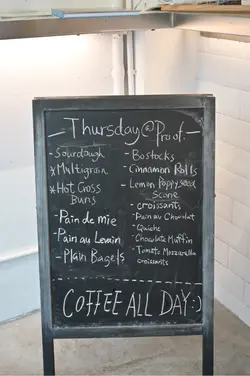 Thursday @ Proof.
- Sourdough
* Multigrain
* Hot Cross
Buns
- Pain de mie
- Pain au Levain
- Plain Bagels
- Bostocks
- Cinnamon Rolls
- Lemon Poppyseed
Scone
- croissants
- Pain au Chocolat
- Quiche
- Chocolate Muffin
- Tomato Mozzarella
croissants
COFFEE ALL DAY :)